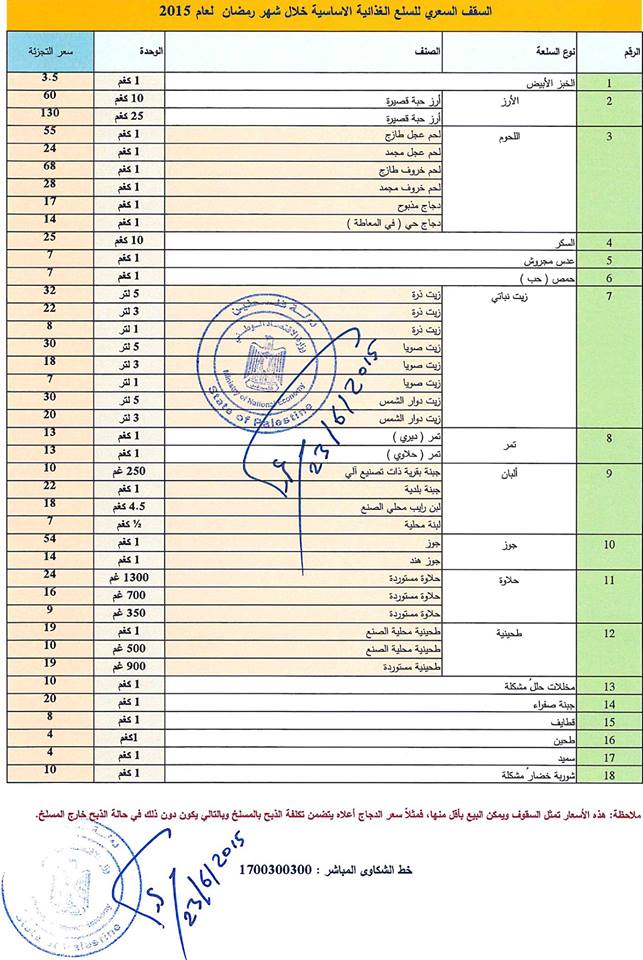 السقف السعري للسلع الغذائية الاساسية خلال شهر رمضان لعام 2015
الرقم نوع السلعة الصنف الوحدة سعر التجزئة
1 الخبز الأبيض 1 كغم 3.5
2 الأرز أرز حبة قصيرة 10 كغم 60
أرز حبة قصيرة 25 كغم 130
3 اللحوم لحم عجل طازج 1 كغم 55
لحم عجل مجمد 1 كغم 24
لحم خروف طازج 1 كغم 68
لحم خروف مجمد 1 كغم 28
دجاج مذبوح 1 كغم 17
دجاج حي ( في المعاطة ) 1 كغم 14
4 السكر 10 كغم 25
5 عدس مجروش 1 كغم 7
6 حمص ( حب ) 1 كغم 7
7 زيت نباتي زيت ذرة 5 لتر 32
زيت ذرة 3 لتر 22
زيت ذرة 1 لتر 8
زيت صويا 5 لتر 30
زيت صويا 3 لتر 18
زيت صويا 1 لتر 7
زيت دوار الشمس 5 لتر 30
زيت دوار الشمس 3 لتر 20
8 تمر تمر ( ديري ) 1 كغم 13
تمر ( حلاوي ) 1 كغم 13
9 ألبان جبنة بقرية ذات تصنيع آلي 250 غم 10
جبنة بلدية 1 كغم 22
لبن رايب محلي الصنع 4.5 كغم 18
لبنة محلية ½ كغم 7
10 جوز جوز 1 كغم 54
جوز هند 1 كغم 14
11 حلاوة حلاوة مستوردة 1300 غم 24
حلاوة مستوردة 700 غم 16
حلاوة مستوردة 350 غم 9
12 طحينية طحينية محلية الصنع 1 كغم 19
طحينية محلية الصنع 500 غم 10
طحينية مستوردة 900 غم 19
13 مخللات حللُ مشكلة 1 كغم 10
14 جبنة صفراء 1 كغم 20
15 قطايف 1 كغم 8
16 طحين 1كغم 4
17 سميد 1 كغم 4
18 شوربة خضارُ مشكلة 1 كغم 10
دولة فلسطين
وزارة الاقتصاد الوطني
Ministry of National Economy
State of Palestine
23/6/2015
ملاحظة: هذه الأسعار تمثل السقوف ويمكن البيع بأقل منها، فمثلاً سعر الدجاج أعلاه يتضمن تكلفة الذبح بالمسلخ وبالتالي يكون دون ذلك في حالة الذبح خارج المسلخ.
خط الشكاوى المباشر : 1700300300
23/6/2015
State of Palestine